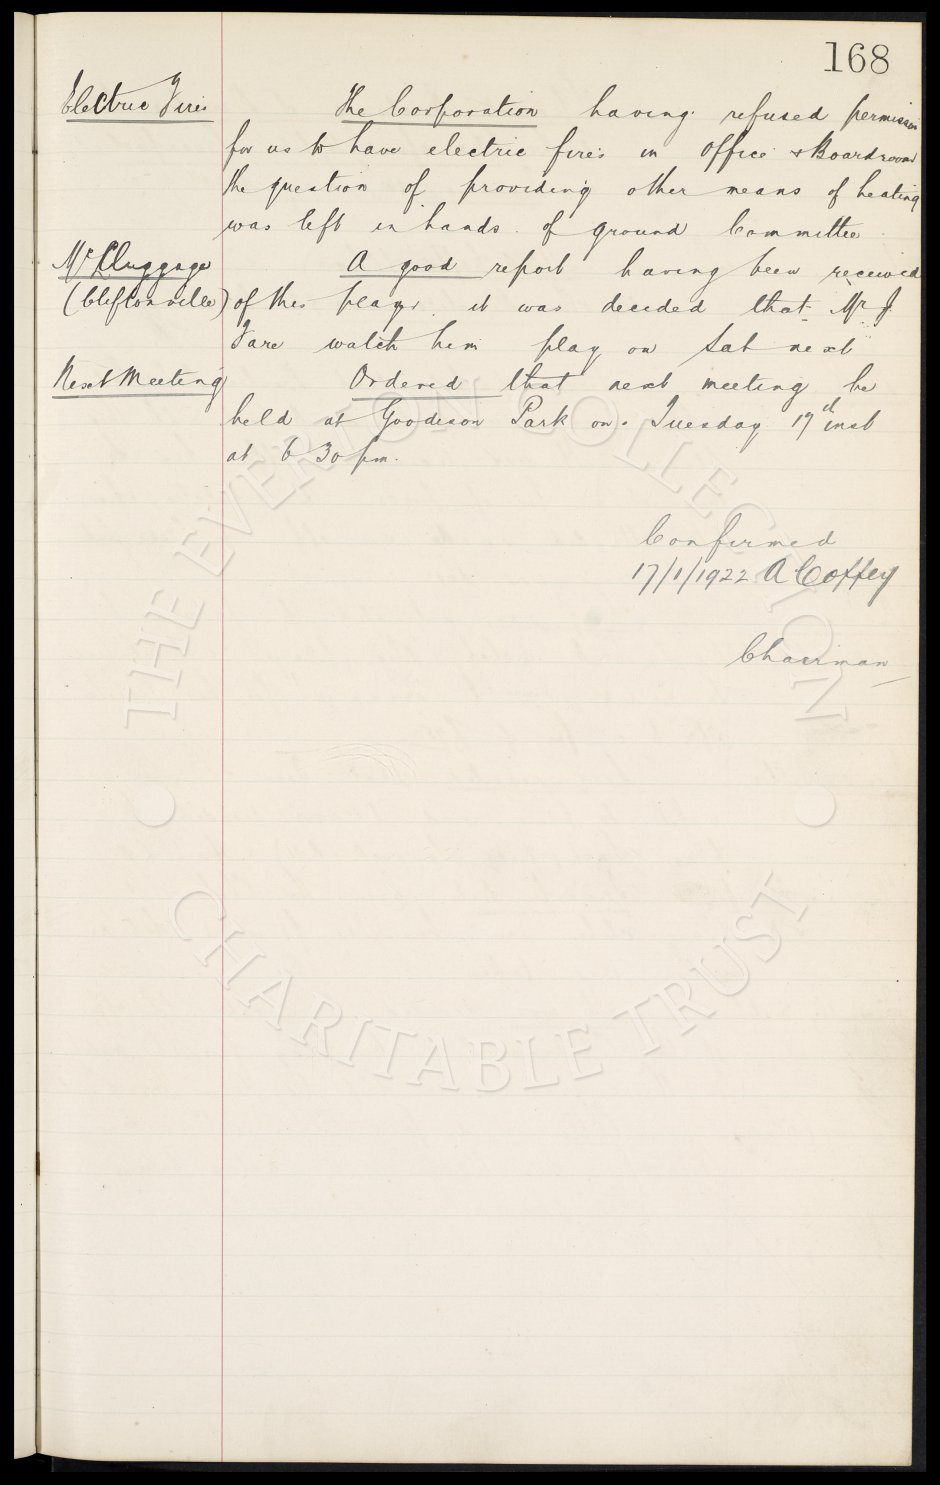 168
Electric Fires
The Corporation having refused permission
for us to have electric fires in Office & Boardroom
the question of providing other means of heating
was left in hands of ground Committee
McCluggage
(Cliftonville)
A good report having been received
of this player it was decided that Mr J.
Fare watch him play on Sat next
Next Meeting
Ordered that next meeting be
held at Goodison Park on Tuesday 17th inst
at 6 30 pm.
Confirmed
17/1/1922 A Coffey
Chairman
THE EVERTON COLLECTION
CHARITABLE TRUST